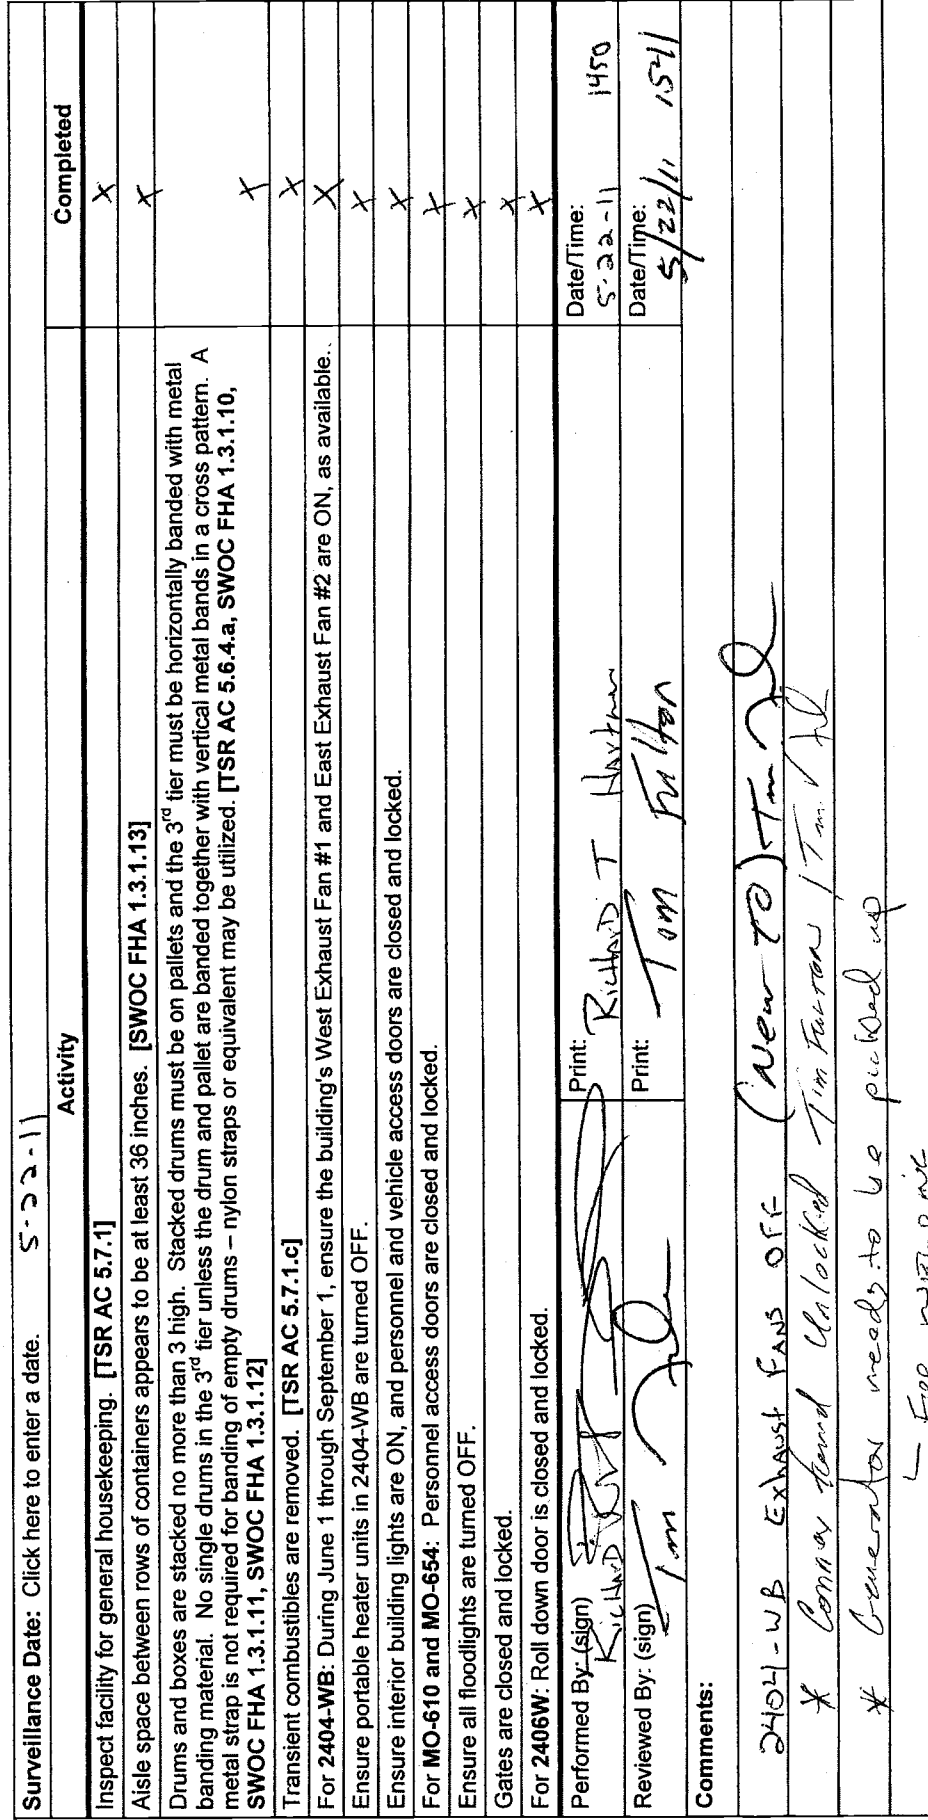 Surveillance Date: Click here to enter a date. 5-22-11
Activity Completed
Inspect facility for general housekeeping. [TSR AC 5.7.1] X
Aisle space between rows of containers appears to be at least 36 inches. [SWOC FHA 1.3.1.13] X
Drums and boxes are stacked no more than 3 high. Stacked drums must be on pallets and the 3rd tier must be horizontally banded with metal
banding material. No single drums in the 3rd tier unless the drum and pallet are banded together with vertical metal bands in a cross pattern. A
metal strap is not required for banding of empty drums – nylon straps or equivalent may be utilized. [TSR AC 5.6.4.a, SWOC FHA 1.3.1.10,
SWOC FHA 1.3.1.11, SWOC FHA 1.3.1.12] X
Transient combustibles are removed. [TSR AC 5.7.1.c] X
For 2404-WB: During June 1 through September 1, ensure the building's West Exhaust Fan #1 and East Exhaust Fan #2 are ON, as available.. X
Ensure portable heater units in 2404-WB are turned OFF. X
Ensure interior building lights are ON, and personnel and vehicle access doors are closed and locked. X
For MO-610 and MO-654: Personnel access doors are closed and locked. X
Ensure all floodlights are turned OFF. X
Gates are closed and locked. X
For 2406W: Roll down door is closed and locked. X
Performed By: (sign) Richard Print: Richard T Hartman Date/Time: 5-22-11 1450
Reviewed By: (sign) Tom Print: Tom Fulton Date/Time: 5/22/11 1541
Comments:
2404-WB Exhaust Fans OFF (New TO) Tom
* Connex found Unlocked
* Generator needs to be picked up